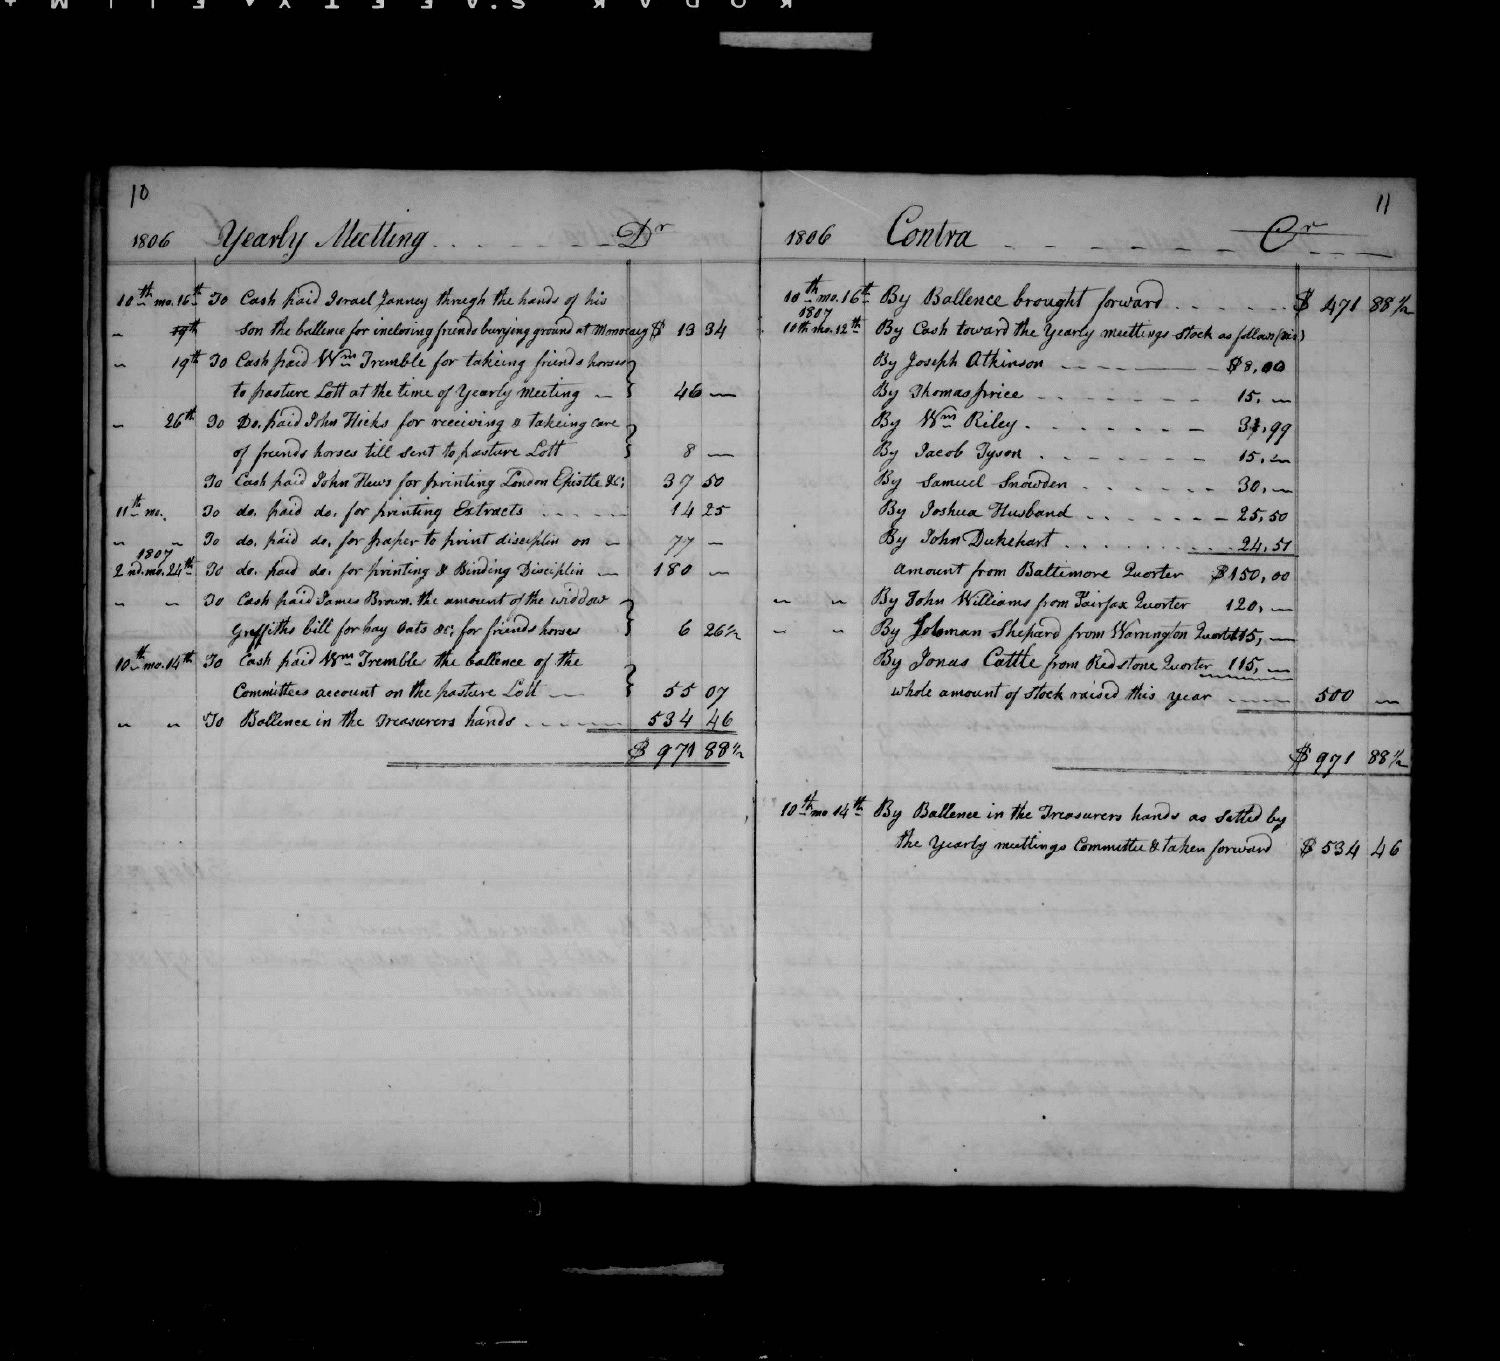 KODAK S.AFETY FILM
10
1806 Yearly Meetting Dr
10th mo. 16th To Cash paid Israel Janney through the hands of his
" 19th son the ballence for inclosing friends burying ground at $ 13 34
" 19th To Cash paid Wm Tremble for takeing friends horses
to pasture Lott at the time of Yearly Meeting 46 —
" 26th To Do. paid John Hicks for receiving & takeing care
of friends horses till sent to pasture Lott 8 —
To Cash paid John Hews for printing London Epistle &c; 37 50
11th mo. To do. paid do. for printing Extracts 14 25
" " To do. paid do. for paper to print disciplin on 77 —
1807
2nd. mo. 24th To do. paid do. for printing & Binding Disciplin 180 —
" " To Cash paid James Brown. the amount of the widdow
Greffiths bill for hay Oats &c; for friends horses 6 26½
10th mo. 14th To Cash paid Wm Tremble the ballence of the
Committees account on the pasture Lott 55 07
" " To Ballence in the Treasurers hands 534 46
$ 971 88½
11
1806 Contra Cr
10th mo. 16th By Ballence brought forward $ 471 88½
1807
10th mo. 12th By Cash toward the Yearly meettings Stock as follows (viz)
By Joseph Atkinson $8,00
By Thomas price 15, —
By Wm Riley 31,99
By Jacob Tyson 15, —
By Samuel Snowden 30, —
By Joshua Husband 25,50
By John Dukehart 24,51
amount from Baltimore Quorter $150,00
" " By John Williams from Fairfax Quorter 120, —
" " By Soloman Shepard from Warrington Quorter 115, —
By Jonas Cattle from Redstone Quorter 115, —
whole amount of Stock raised this year 500 —
$ 971 88½
10th mo 14th By Ballence in the Treasurers hands as setled by
the Yearly meettings Committee & taken forward $ 534 46